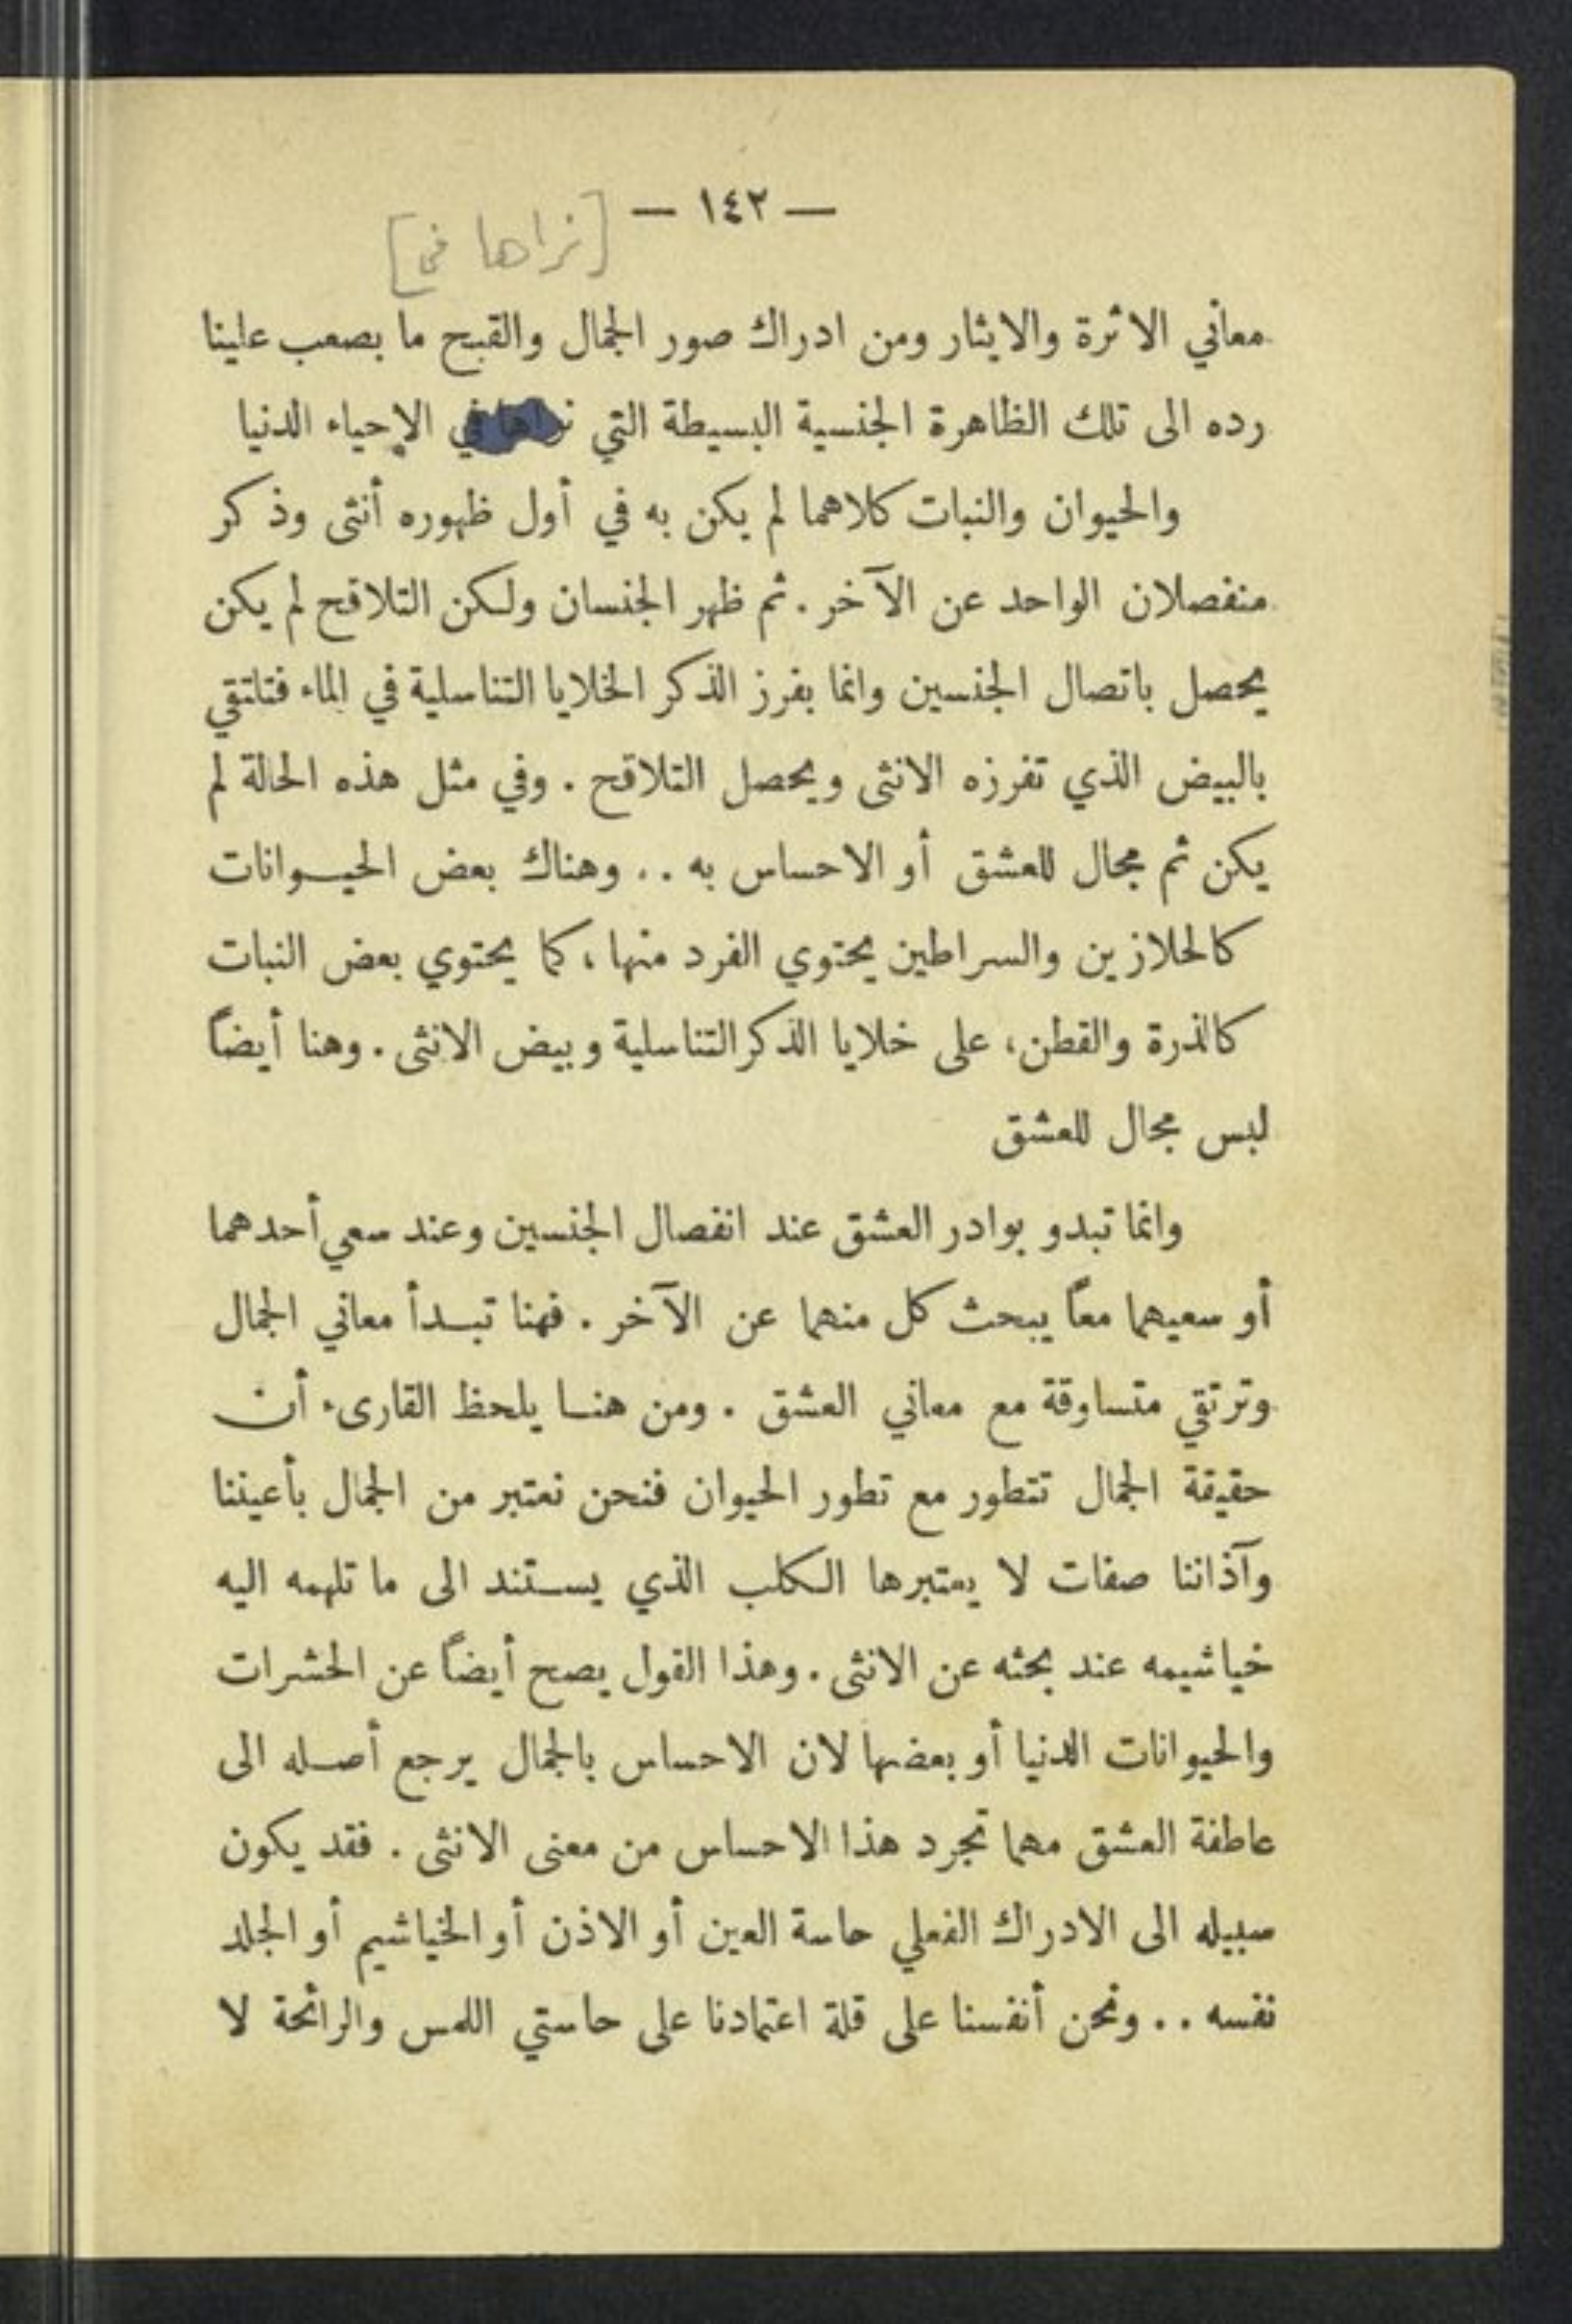 — ١٤٢ —
[نراها في]
معاني الاثرة والايثار ومن ادراك صور الجمال والقبح ما يصعب علينا
رده الى تلك الظاهرة الجنسية البسيطة التي نراها في الإحياء الدنيا
والحيوان والنبات كلاهما لم يكن به في أول ظهوره أنثى وذكر
منفصلان الواحد عن الآخر . ثم ظهر الجنسان ولكن التلاقح لم يكن
يحصل باتصال الجنسين وانما يفرز الذكر الخلايا التناسلية في الماء فتلتقي
بالبيض الذي تفرزه الانثى ويحصل التلاقح . وفي مثل هذه الحالة لم
يكن ثم مجال للعشق أو الاحساس به .. وهناك بعض الحيوانات
كالحلازين والسراطين يحتوي الفرد منها ، كما يحتوي بعض النبات
كالذرة والقطن ، على خلايا الذكر التناسلية وبيض الانثى . وهنا أيضاً
ليس مجال للعشق
وانما تبدو بوادر العشق عند انفصال الجنسين وعند سعي أحدهما
أو سعيهما معاً يبحث كل منهما عن الآخر . فهنا تبدأ معاني الجمال
وترتقي متساوقة مع معاني العشق . ومن هنا يلحظ القارىء أن
حقيقة الجمال تتطور مع تطور الحيوان فنحن نعتبر من الجمال بأعيننا
وآذاننا صفات لا يعتبرها الكلب الذي يستند الى ما تلهمه اليه
خياشيمه عند بحثه عن الانثى . وهذا القول يصح أيضاً عن الحشرات
والحيوانات الدنيا أو بعضها لان الاحساس بالجمال يرجع أصله الى
عاطفة العشق مهما تجرد هذا الاحساس من معنى الانثى . فقد يكون
سبيله الى الادراك الفعلي حاسة العين أو الاذن أو الخياشيم أو الجلد
نفسه .. ونحن أنفسنا على قلة اعتمادنا على حاستي اللمس والرائحة لا